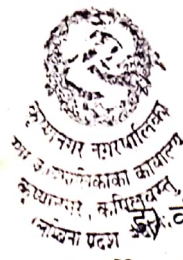 कृष्णनगर नगरपालिका
नगर कार्यपालिकाको कार्यालय
कृष्णनगर, कपिलवस्तु
लुम्बिनी प्रदेश